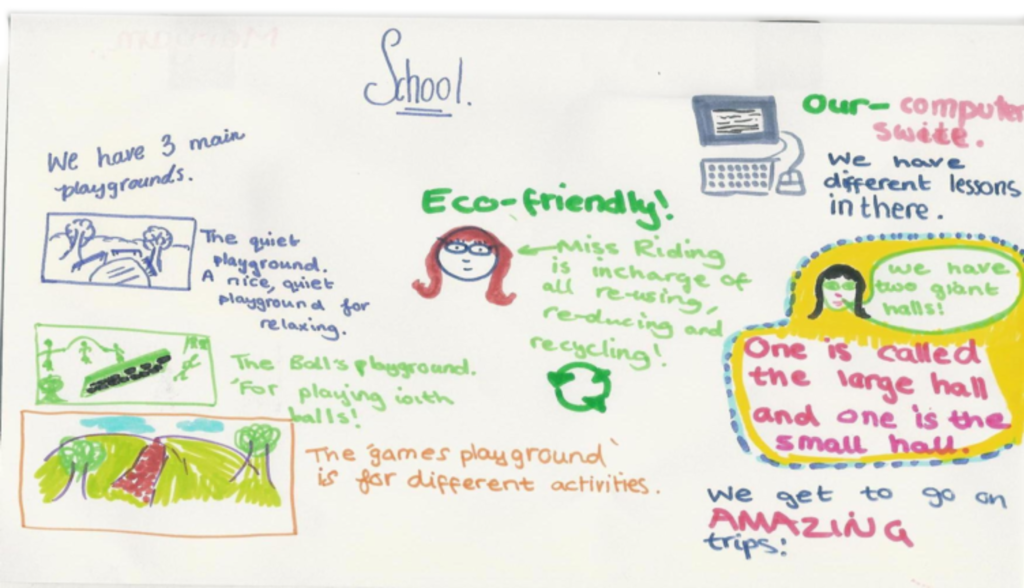 School.
We have 3 main
playgrounds.
The quiet
playground.
A nice, quiet
playground for
relaxing.
The Ball's playground.
For playing with
balls!
The 'games playground'
is for different activities.
Eco-friendly!
Miss Riding
is incharge of
all re-using,
re-ducing and
recycling!
Our- computer
swite.
We have
different lessons
in there.
we have
two giant
halls!
One is called
the large hall
and one is the
small hall.
We get to go on
AMAZING
trips: